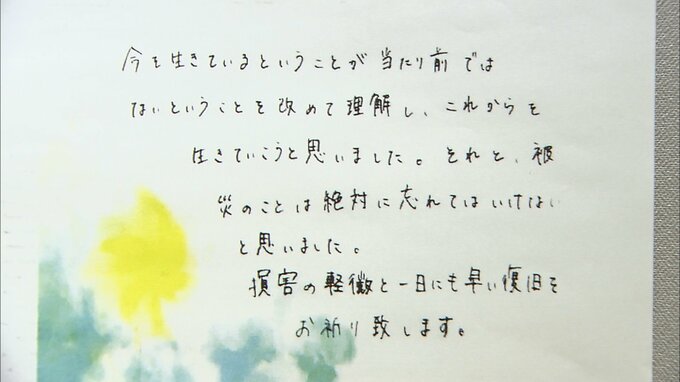 今を生きているということが当たり前では
ないということを改めて理解し、これからを
生きていこうと思いました。それと、被
災のことは絶対に忘れてはいけない
と思いました。
損害の軽微と一日にも早い復旧を
お祈り致します。